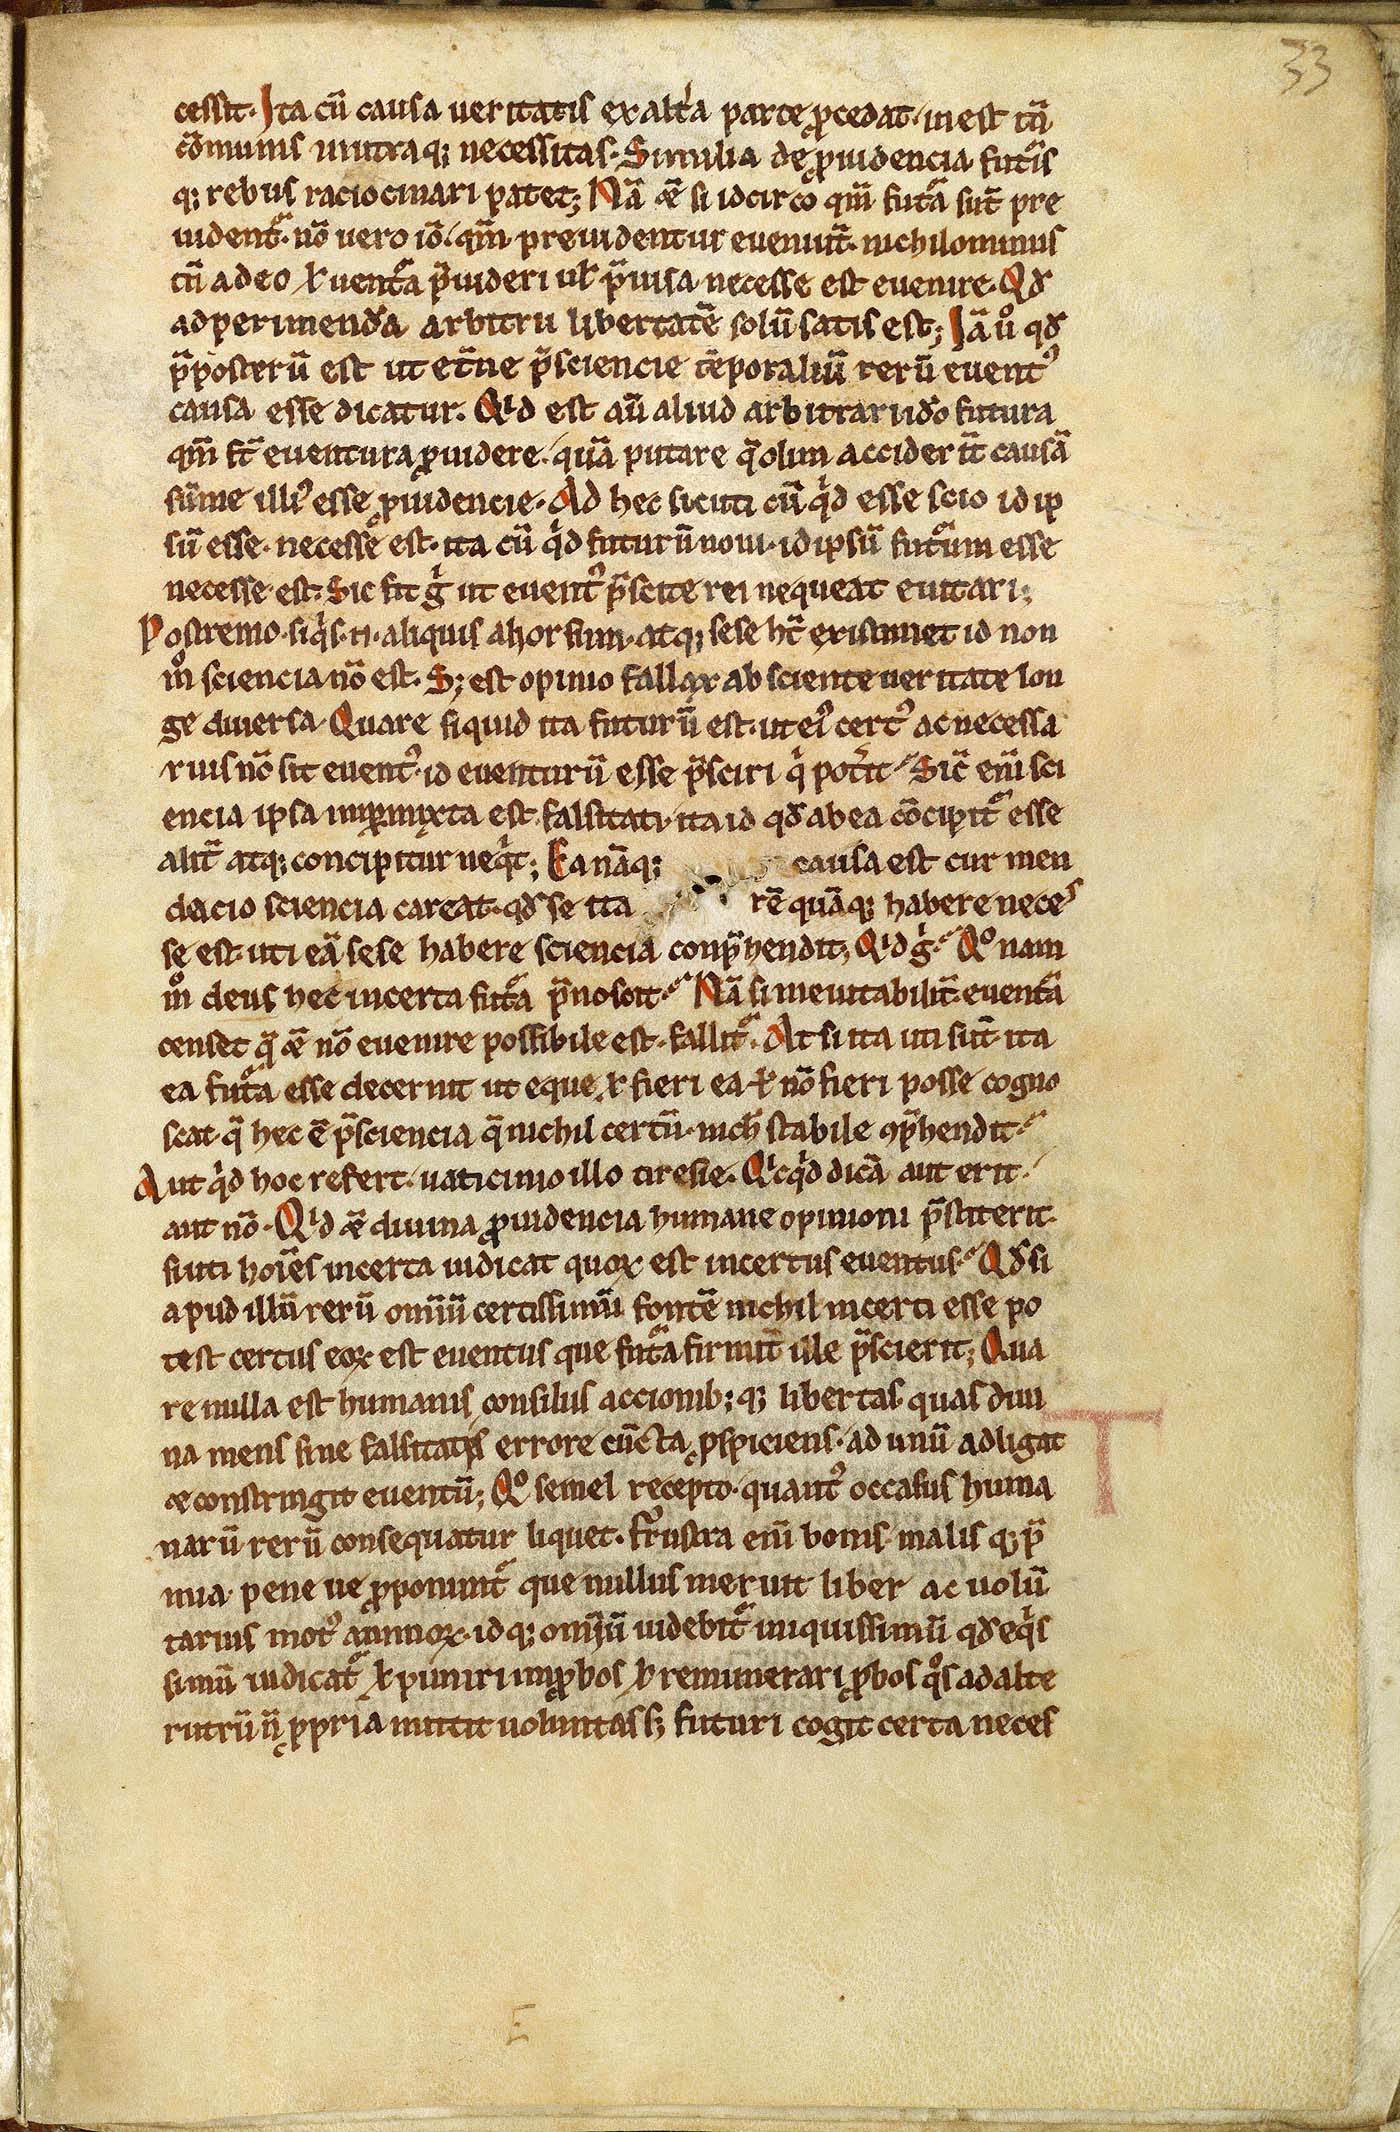 33
cessit. Ita cū causa ueritatis ex altera parte ꝓcedat. inest tn̄
cōmunis in utraq; necessitas. Similia de ꝓuidencia futuris
q; rebus raciocinari patet; Nā &̄ si idcirco qm̄ futa̅ sūt pre
uident᷑. nō uero iō. qm̄ preuidentur eueniūt. nichilominus
tn̄ a deo ł uenta̅ p̄uideri uł p̄uisa necesse est euenire. Qd̄
ad perimenda arbitrii libertatē solū satis est; Iā ů qd̄
p̄posterū est ut et̄ne p̄sciencie tēporaliū rerū euentꝰ
causa esse dicatur. Qid est aū aliud arbitrari ido futura
qm̄ st̄ euentura ꝓuidere. quā putare q̄ olim acciderīt causā
sūme illiꝰ esse ꝓuidencie. Ad hec sicuti cū qͥd esse scio id ip
sū esse. necesse est. ita cū qͥd futurū noui. id ipsū futurum esse
necesse est. Sic fit gͥ ut euentꝰ p̄scite rei nequeat euitari;
Postremo. siqͥs. aliquis ahorsum. atq; sese ht̄ existimet id non
m̊ sciencia nō est. S; est opinio fallax ab sciente ueritate lon
ge diuersa. Quare siquid ita futurū est. ut eiꝰ certꝰ ac necessa
rius nō sit euentꝰ. id euenturū esse p̄sciri qͥ pot̄it. Sic̄ eni̅ sci
encia ipsa inp̱mixta est falsitati. ita id qd̄ ab ea cōcipit᷑ esse
alit̄ atq; concipitur neqͥt; Ea nāq; causa est cur men
dacio sciencia careat. qd̄ se ita rē quāq; habere neces
se est. uti eā sese habere sciencia conp̄hendit; Qid gͥ. Qo nam
m̊ deus hec incerta futa̅ p̄noscit. Nā si ineuitabilit̄. euenta̅
censet q̄ &̄ nō euenire possibile est. fallit᷑. At si ita uti sūt ita
ea futa̅ esse decernit ut eque ł fieri ea ł nō fieri posse cogno
scat. q̄ hec ē p̄sciencia q̄ nichil certū. nich̄ stabile ꝯp̄hendit.
Aut qͥd hoc refert. uaticinio illo tiresie. Qicqͥd dicā aut erit.
aut nō. Qid &̄ diuina ꝓuidencia humane opinioni p̄stiterit.
si uti hoīes incerta iudicat quoꝝ est incertus euentus. Qd̄ si
apud illū rerū omiū certissimū fontē nichil incerti esse po
test certus eoꝝ est euentus que futa̅ firmit̄ ille p̄scierit; Qua
re nulla est humanis consiliis accionib; q; libertas. quas diui
na mens sine falsitatis errore cūcta ꝓspiciens. ad unū adligat
& constringit euentū; Qo semel recepto. quantꝰ occasus huma
narū rerū consequatur liquet. frustra eni̅ bonis malis q; p̄
mia. pene ue ꝓponunt᷑ que nullus meruit liber ac uolū
tarius motꝰ animoꝝ. id q; omiū uidebit᷑ iniquissimū qd̄ eqͥs
simū iudicat᷑ ł puniri inꝓbos ł remunerari ꝓbos qͦs ad alte
rutrū n̄ ꝓpria mittit uoluntas s; futuri cogit certa neces